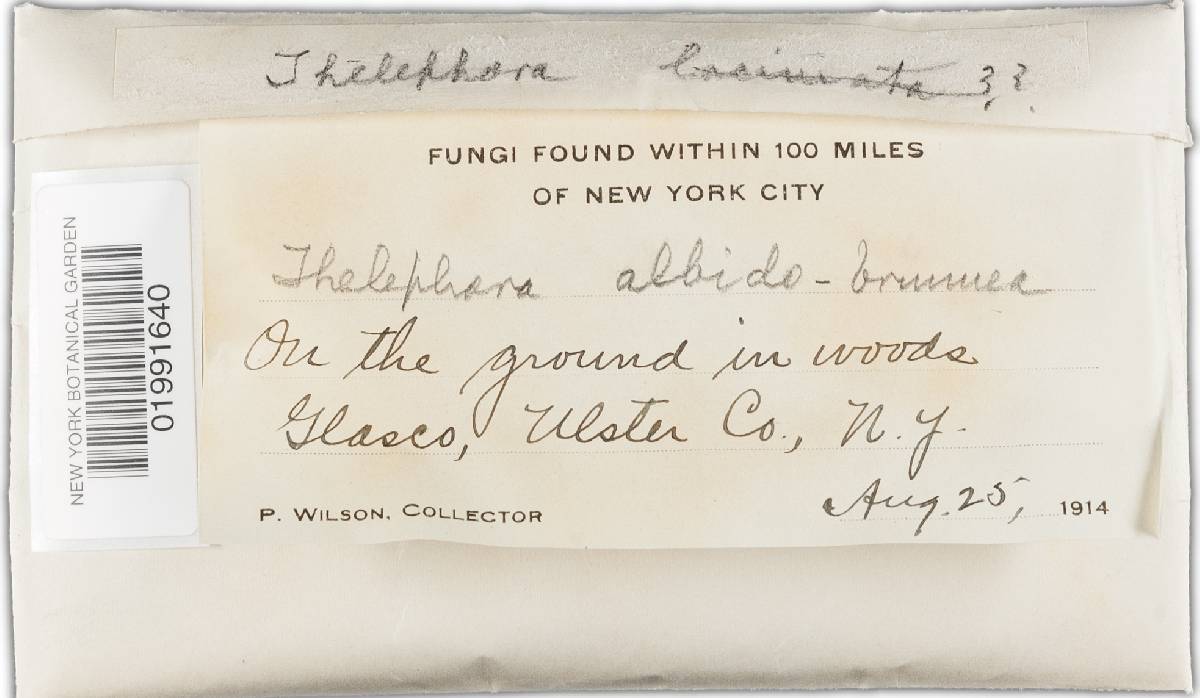 Thelephora laciniata ??
FUNGI FOUND WITHIN 100 MILES
OF NEW YORK CITY
Thelephora albido-brunnea
On the ground in woods
Glasco, Ulster Co., N. Y.
P. WILSON, COLLECTOR
Aug. 25, 1914
NEW YORK BOTANICAL GARDEN
01991640